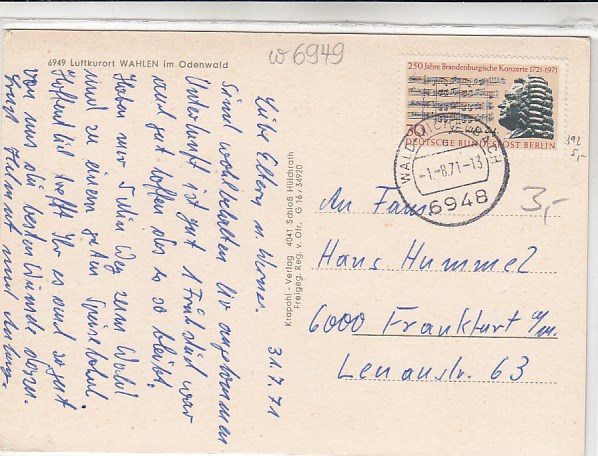 6949 Luftkurort WAHLEN im Odenwald
w 6949
250 Jahre Brandenburgische Konzerte 1721-1971
30
DEUTSCHE BUNDESPOST BERLIN
WALD-MICHELBACH
-1.-8.71-13
6948
392
5,-
3,-
Liebe Eltern u. Werner. 31.7.71
Sind wohlbehalten hier angekommen
Unterkunft ist gut 1 Frühstück war
auch gut hoffen das es so bleibt.
Haben nur 5 Min Weg zum Wald
und zu einem guten Speiselokal.
Hoffentlich trefft Ihr es auch so gut
von uns die besten Wünsche dazu.
Helmut und
Krapohl-Verlag 4041 Schloß Hülchrath
Freigeg. Reg. v. Ofr. G 16/34920
An Fam.
Hans Hummel
6000 Frankfurt a/m.
Lenaustr. 63